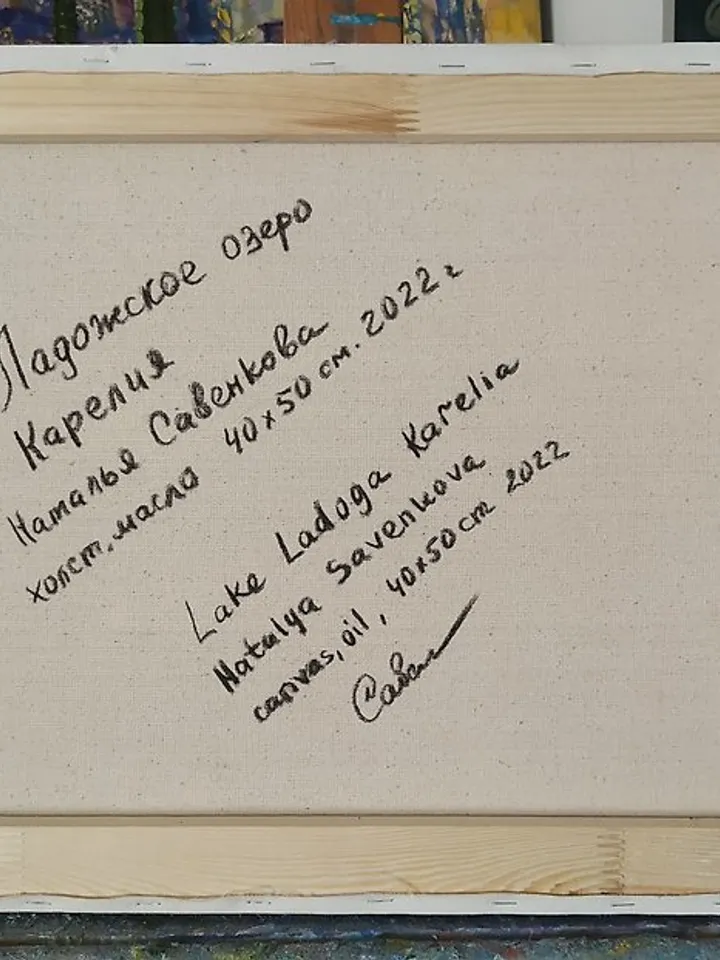 Ладожское озеро
Карелия
Наталья Савенкова
холст, масло 40х50 см. 2022 г
Lake Ladoga Karelia
Natalya Savenkova
canvas, oil, 40x50 cm 2022